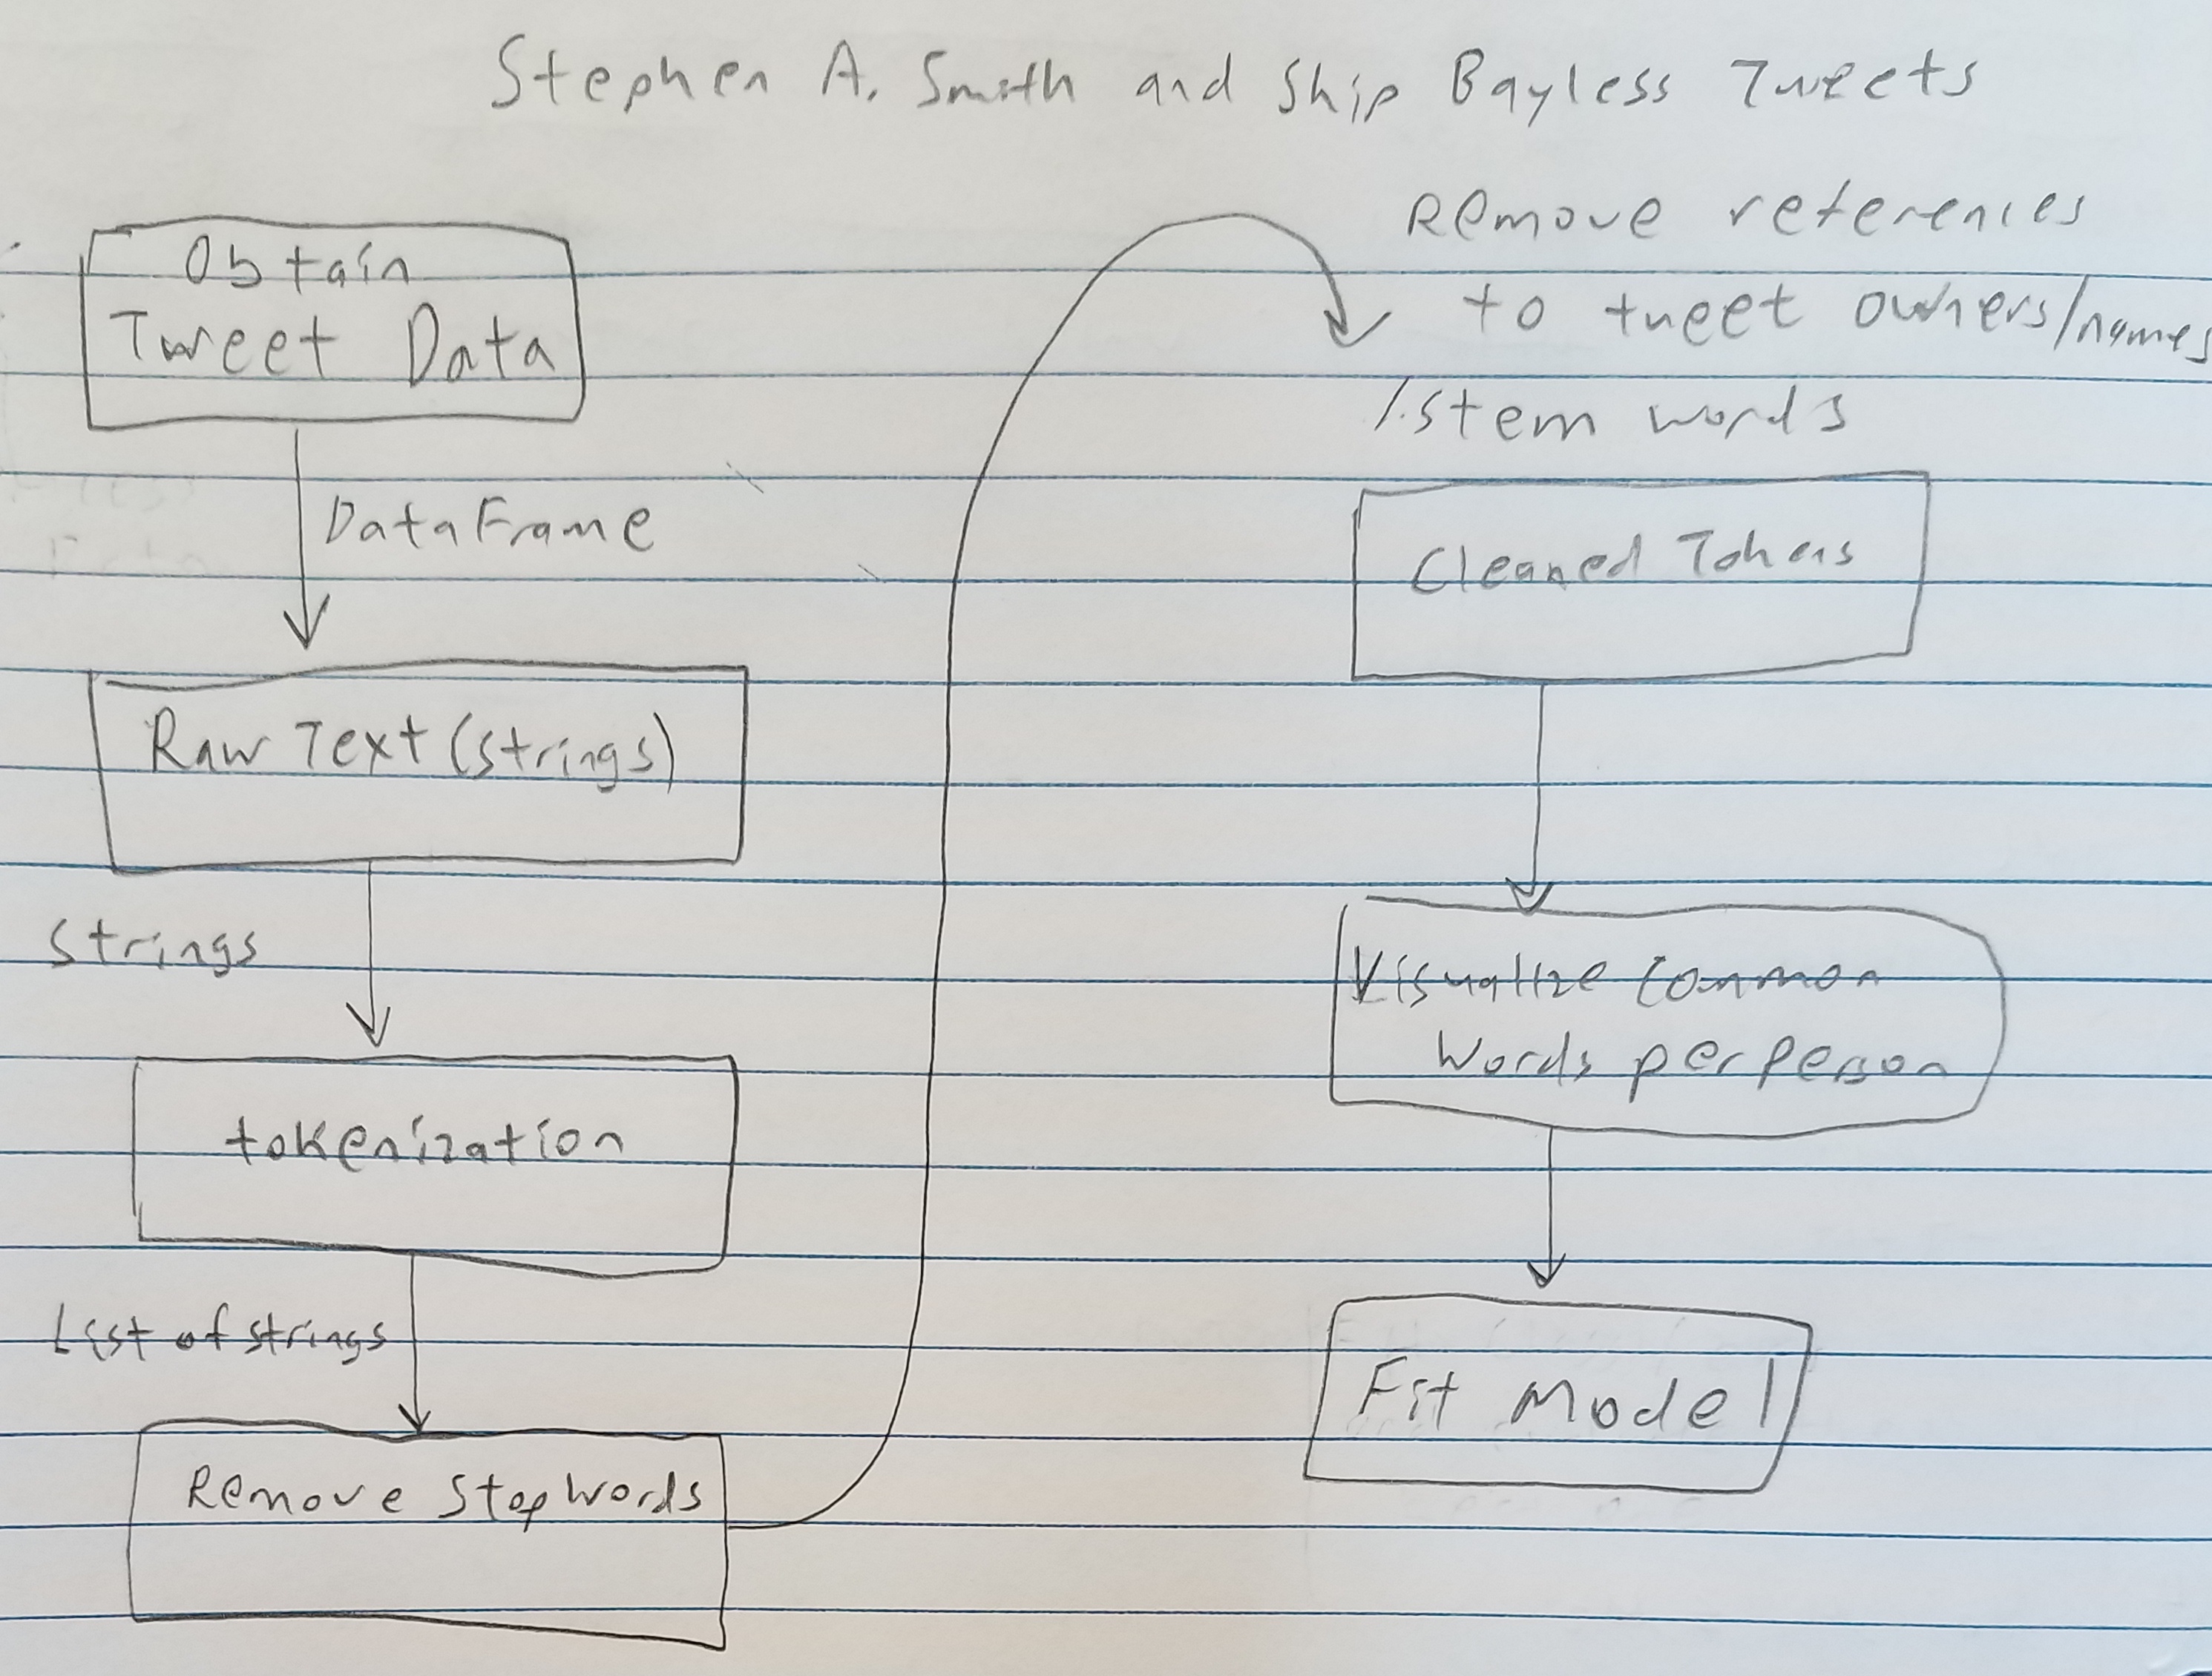 Stephen A. Smith and Skip Bayless Tweets
Obtain
Tweet Data
DataFrame
Raw Text (strings)
Strings
tokenization
List of strings
Remove StopWords
Remove references
to tweet owners/names
/stem words
Cleaned Tokens
Visualize Common
Words per Person
Fit Model